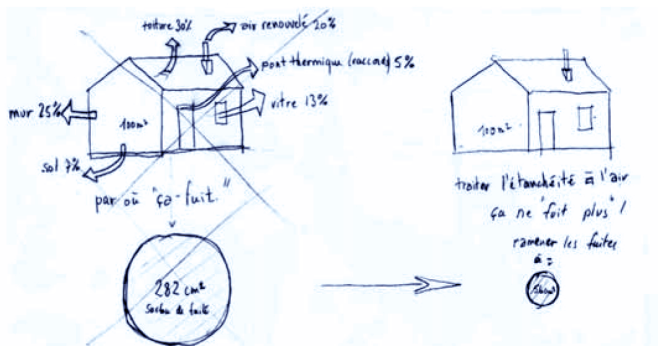 toiture 30%
air renouvelé 20%
pont thermique (raccords) 5%
vitre 13%
mur 25%
100m²
sol 7%
par où "ça-fuit."
282 cm²
de fuite
100m²
traiter l'étanchéité à l'air
ça ne "fuit plus" !
ramener les fuites
à =